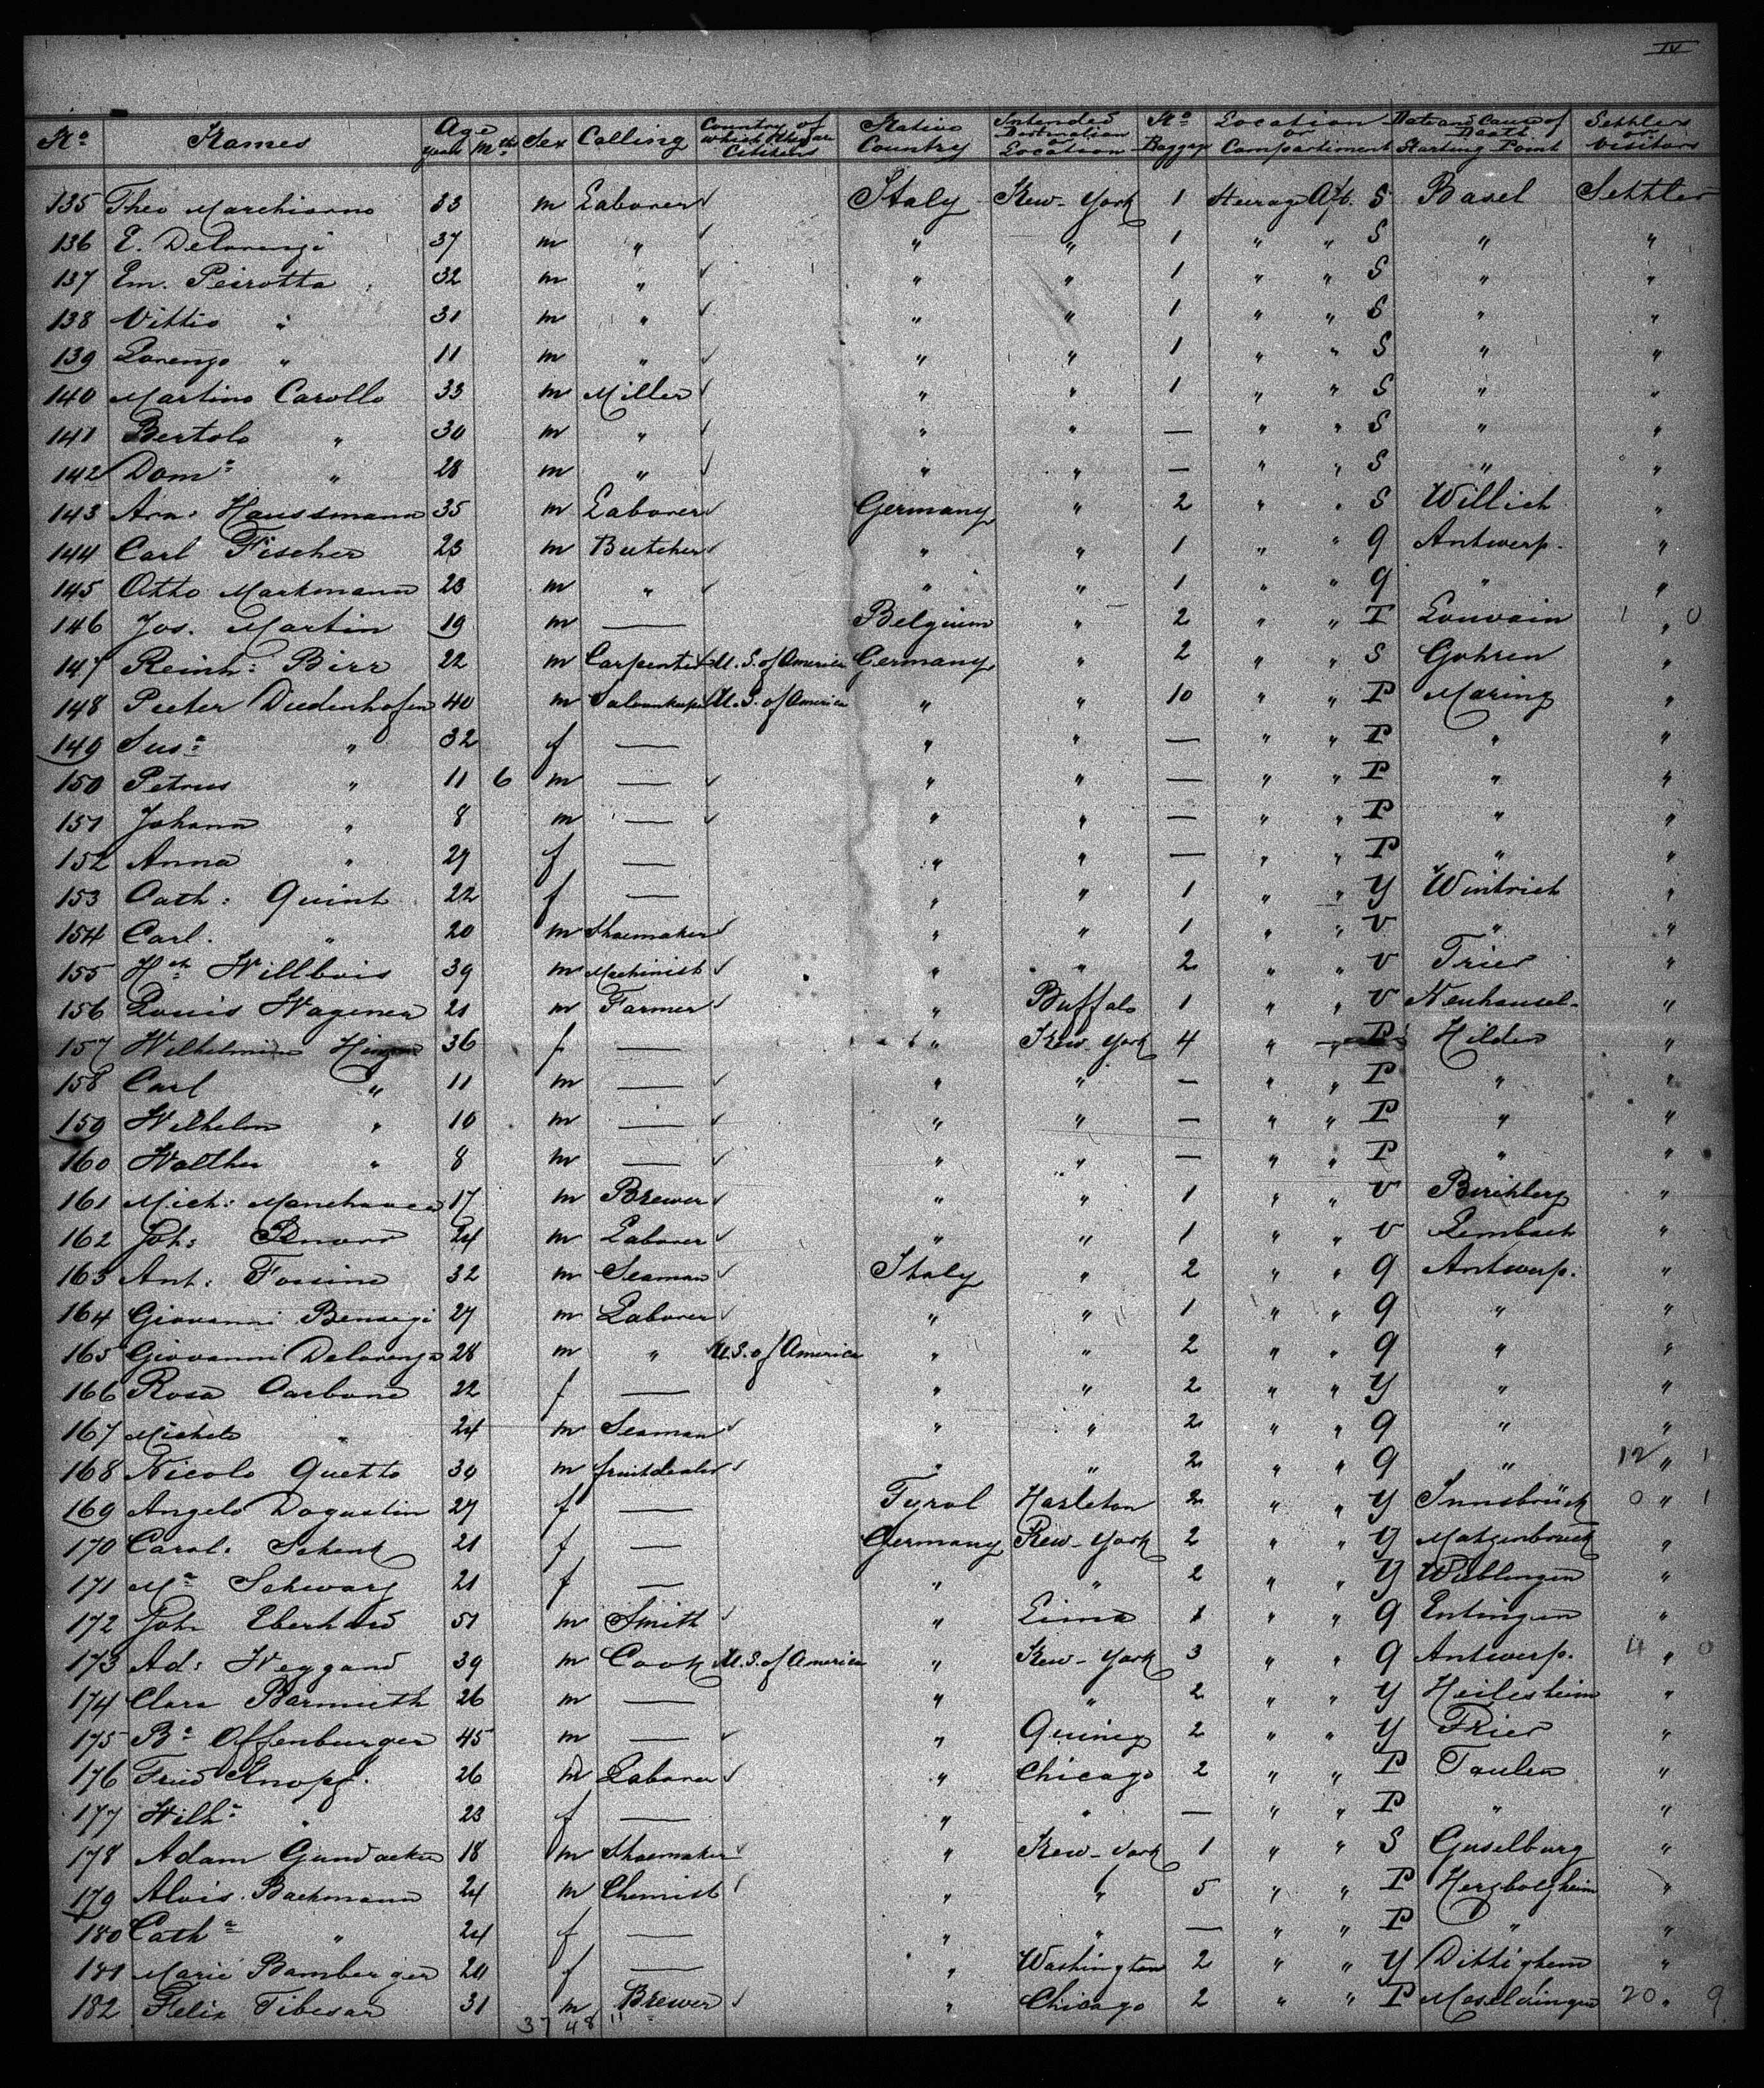 IV
No Names Age Years Mths Sex Calling Country of which they are Citizens Native Country Intended Destination or Location No Baggage Location or Compartiment Date and Cause of Death Starting Point Settlers or Visitors
135 Theo Marchisono 33 m Laborer ✓ Italy New-York 1 Steerage Aft. S Basel Settler
136 E. Delorenzi 37 m " ✓ " " 1 " " S " "
137 Em. Peirotta 32 m " ✓ " " 1 " " S " "
138 Vittio " 31 m " ✓ " " 1 " " S " "
139 Lorenzo " 11 m " ✓ " " 1 " " S " "
140 Martino Carollo 33 m Miller ✓ " " 1 " " S " "
141 Bertolo " 30 m " ✓ " " — " " S " "
142 Doma " 28 m " ✓ " " — " " S " "
143 Arn: Haussmann 35 m Laborer ✓ Germany " 2 " " S Willich "
144 Carl Fischer 23 m Butcher ✓ " " 1 " " G Antwerp. "
145 Otto Markmann 23 m " ✓ " " 1 " " G " "
146 Jos. Martin 19 m — Belgium " 2 " " T Louvain 1 " 0
147 Reinh: Birr 22 m Carpenter U.S. of America Germany " 2 " " S Gohren "
148 Peter Diedenhofen 40 m Saloonkeeper U.S. of America " " 10 " " P Maring "
149 Susa " 32 f — " " — " " P " "
150 Petrus " 11 6 m — ✓ " " — " " P " "
151 Johann " 8 m — ✓ " " — " " P " "
152 Anna " 29 f — " " — " " P " "
153 Cath: Quint 22 f — " " 1 " " Y Wintrich "
154 Carl. " 20 m Shoemaker ✓ " " 1 " " V " "
155 Hch Willbois 39 m Machinist ✓ " " 2 " " V Trier "
156 Louis Wagener 21 m Farmer ✓ " Buffalo 1 " " V Neuhausel- "
157 Wilhelmine 36 f — " New-York 4 " " P Hilden "
158 Carl " 11 m — ✓ " " — " " P " "
159 Wilhelm " 10 m — ✓ " " — " " P " "
160 Walther " 8 m — ✓ " " — " " P " "
161 Mich: 17 m Brewer ✓ " " 1 " " V "
162 Joh: 24 m Laborer ✓ " " 1 " " V Lembach "
163 Ant: Fossino 32 m Seaman ✓ Italy " 2 " " G Antwerp. "
164 Giovanni Bensegi 27 m Laborer ✓ " " 1 " " G " "
165 Giovanni Delorenzo 28 m " U.S. of America " " 2 " " G " "
166 Rosa Carbone 22 f — " " 2 " " Y " "
167 Michele " 24 m Seaman ✓ " " 2 " " G " "
168 Nicolo Quetto 30 m fruitdealer ✓ " " 2 " " G " 12 " 1
169 Angelo Dogustin 27 f — Tyrol Hasleton 2 " " Y Innsbrück 0 " 1
170 Carol. Schenk 21 f — Germany New-York 2 " " Y Matzenbruck "
171 Ma Schwarz 21 f — " " 2 " " Y Wiblingen "
172 Joh Eberhard 51 m Smith ✓ " Lima 1 " " G Entingen "
173 Ad: Weygand 39 m Cook U.S. of America " New-York 3 " " G Antwerp. 4 " 0
174 Clara Barmuth 26 m — " " 2 " " Y Heilesheim "
175 Ba Offenburger 45 m — ✓ " Quincy 2 " " Y Trier "
176 Fried Knopf. 26 m Laborer ✓ " Chicago 2 " " P Taulen "
177 Wilha " 23 f — " " — " " P " "
178 Adam Gundacker 18 m Shoemaker ✓ " New-York 1 " " S Guselburg "
179 Alois. Bachmann 24 m Chemist ✓ " " 5 " " P Herzbolzheim "
180 Catha " 24 f — " " — " " P " "
181 Marie Bamberger 20 f — " Washington 2 " " Y Dittigheim "
182 Felix Tibesar 31 m Brewer ✓ " Chicago 2 " " P 20 " 9
37 48 11